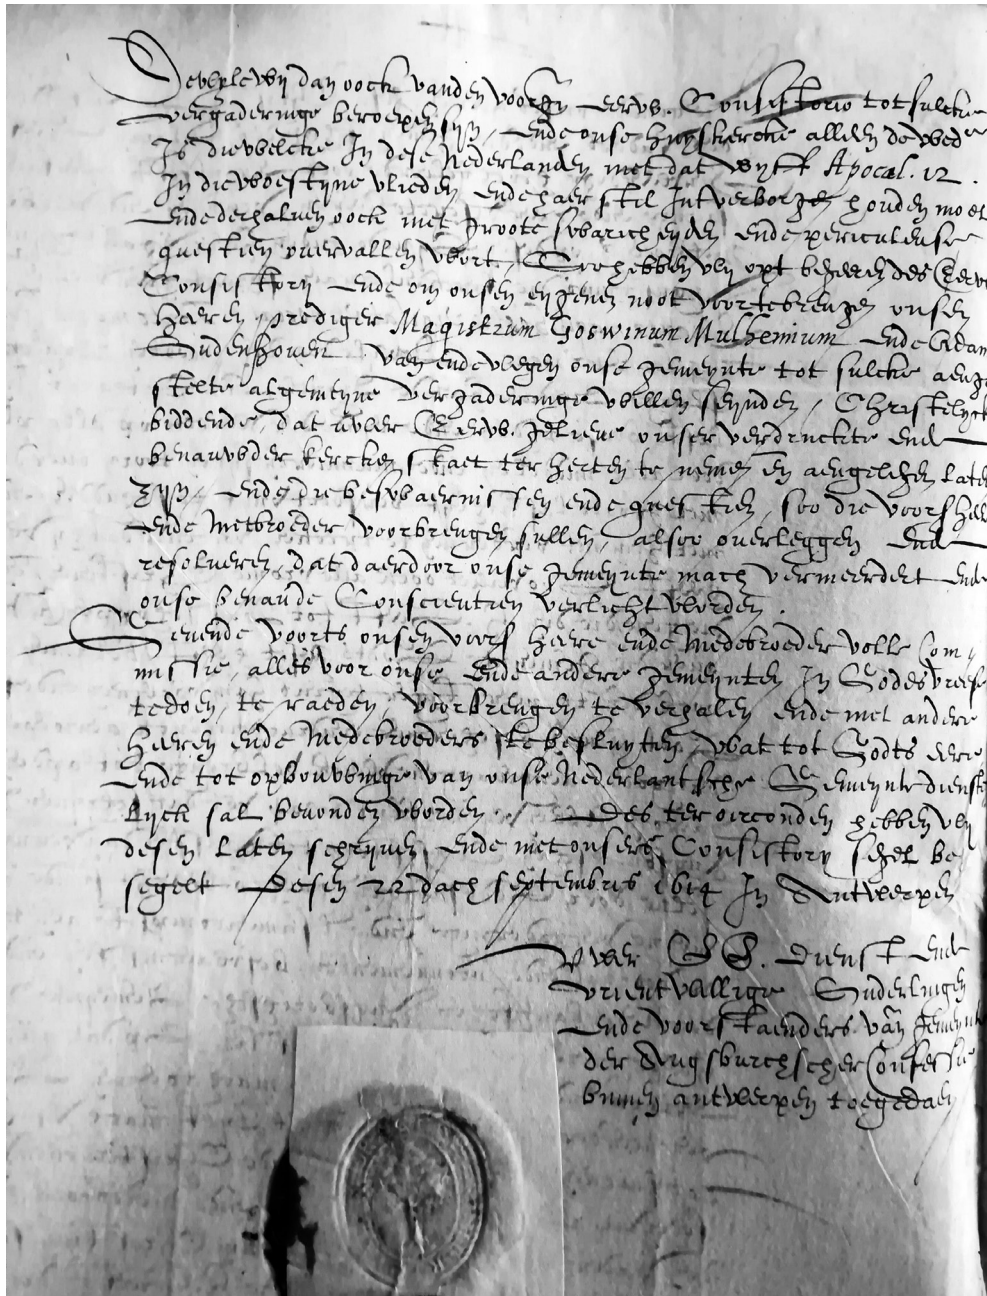 Dewyle wij dan oock vanden voorsz Eerw. Consistorio tot sulcke
vergaderinge beroepen sijn, ende onse huyskercke alleen de wed
Is diewelcke In dese Nederlanden met dat wyff Apocal. 12.
In die woestijne vlieden ende haer stil Int verborgen houden moet
Ende derhalven oock met groote swaricheyden ende periculeuse
questien overvallen wort, Soo hebben wy opt begeeren des Eerw
Consistory Ende om onsen eygenen noot voortebrengen onsen
Heeren prediger Magistrum Goswinum Mulhemium Ende Adam
Oudenhoven van ende wegen onse gemeynte tot sulcke aenge
stelte algemeyne vergaderinge willen seynden, Christelyck
biddende, dat uwer Eerw. gelieve onser verdruckte Ende
benauwder kercken staet ter herten te nemen en aengelegen laten
zijn, Ende die beswaernissen ende questien, soo die voors heer
Ende Metbroeder voorbrengen sullen, alsoo overleggen Ende
resolveren, dat daerdoor onse gemeynte mach vermeerdert Ende
onse benaude Conscientien verlicht worden.
Gevende voorts onsen voors heere ende Medebroeder volle Com
missie, alles voor onse Ende andere gemeynten In Godes vreese
te doen, te raeden, voorbrengen te verhalen ende met andere
Heeren ende Medebroeders te besluyten, wat tot Godts eere
Ende tot opbouwinge van onse Nederlantsche Gemeynte dienst
lyck sal bevonden worden. Des ter oirconden hebben wy
desen laten schryven, Ende met onsers Consistory segel be
segelt Desen 22 dach septembris 1614 In Antwerpen
Uwer EE. Dienst Ende
vrientwillige Ouderlingen
Ende voorstaenders van gemeynte
der Augsburchscher Confessie
binnen antwerpen toegedaen